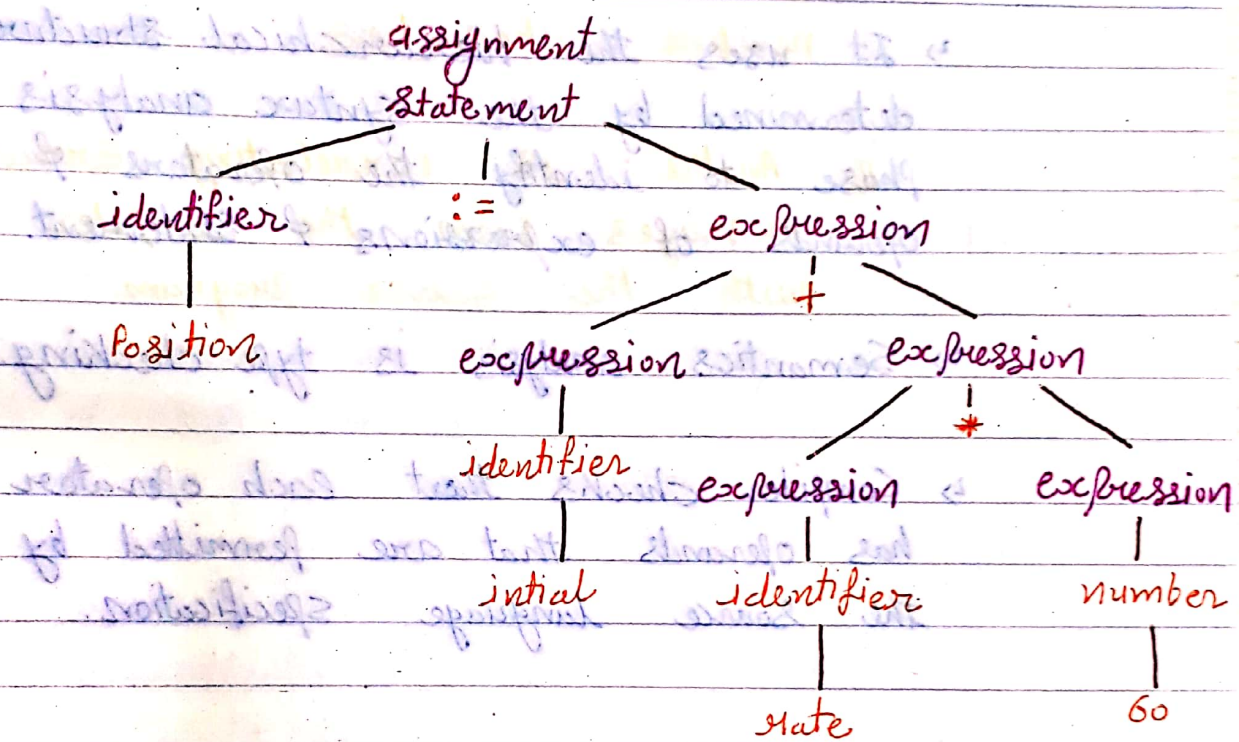 assignment
statement
identifier := expression
+
Position expression expression
*
identifier expression expression
intial identifier number
rate 60